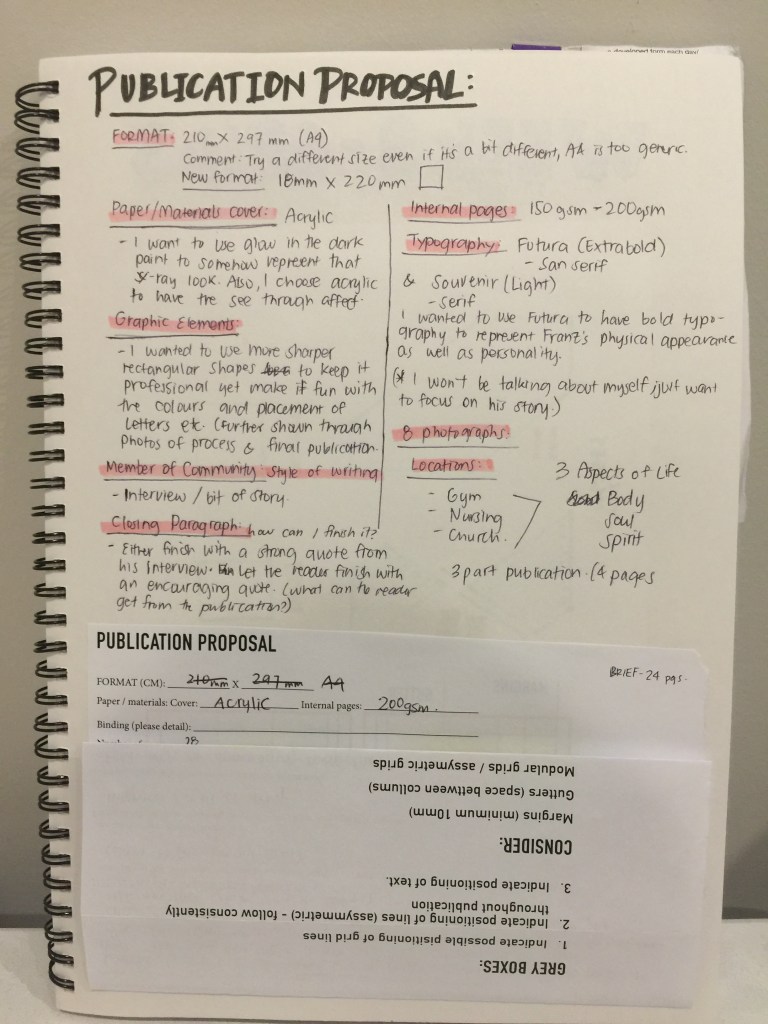 PUBLICATION PROPOSAL:
FORMAT: 210mm X 297 mm (A4)
Comment: Try a different size even if it's a bit different, A4 is too generic.
New format: 18mm X 220mm
Paper/Materials cover: Acrylic
- I want to use glow in the dark
paint to somehow represent that
X-ray look. Also, I choose acrylic
to have the see through affect.
Graphic Elements:
- I wanted to use more sharper
rectangular shapes to keep it
professional yet make it fun with
the colours and placement of
letters etc. (Further shown through
photos of process & final publication.
Member of Community: Style of writing
- Interview / bit of story.
Closing Paragraph: how can I finish it?
- Either finish with a strong quote from
his interview. Let the reader finish with
an encouraging quote. (what can the reader
get from the publication?)
Internal pages: 150gsm - 200gsm
Typography: Futura (Extrabold)
- San serif
& Souvenir (Light)
- serif
I wanted to use Futura to have bold typo-
graphy to represent Franz's physical appearance
as well as personality.
(* I won't be talking about myself, just want
to focus on his story.)
8 photographs:
Locations:
- Gym
- Nursing
- Church.
3 Aspects of Life
Body
Soul
Spirit
3 part publication. (4 pages
PUBLICATION PROPOSAL
BRIEF - 24 pgs.
FORMAT (CM): 210mm X 297mm A4
Paper / materials: Cover: Acrylic Internal pages: 200gsm.
Binding (please detail):
GREY BOXES:
1. Indicate possible pisitioning of grid lines
2. Indicate positioning of lines (assymetric) - follow consistently
throughout publication
3. Indicate positioning of text.
CONSIDER:
Margins (minimum 10mm)
Gutters (space bettween collums)
Modular grids / assymetric grids